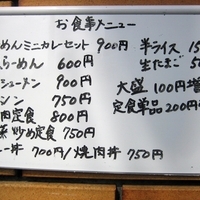 お食事メニュー
めんミニカレーセット 900円
らーめん 600円
シューメン 900円
シン 750円
肉定食 800円
炒め定食 750円
ー丼 700円/焼肉丼 750円
半ライス 15
生たまご 5
大盛 100円増
定食単品 200円